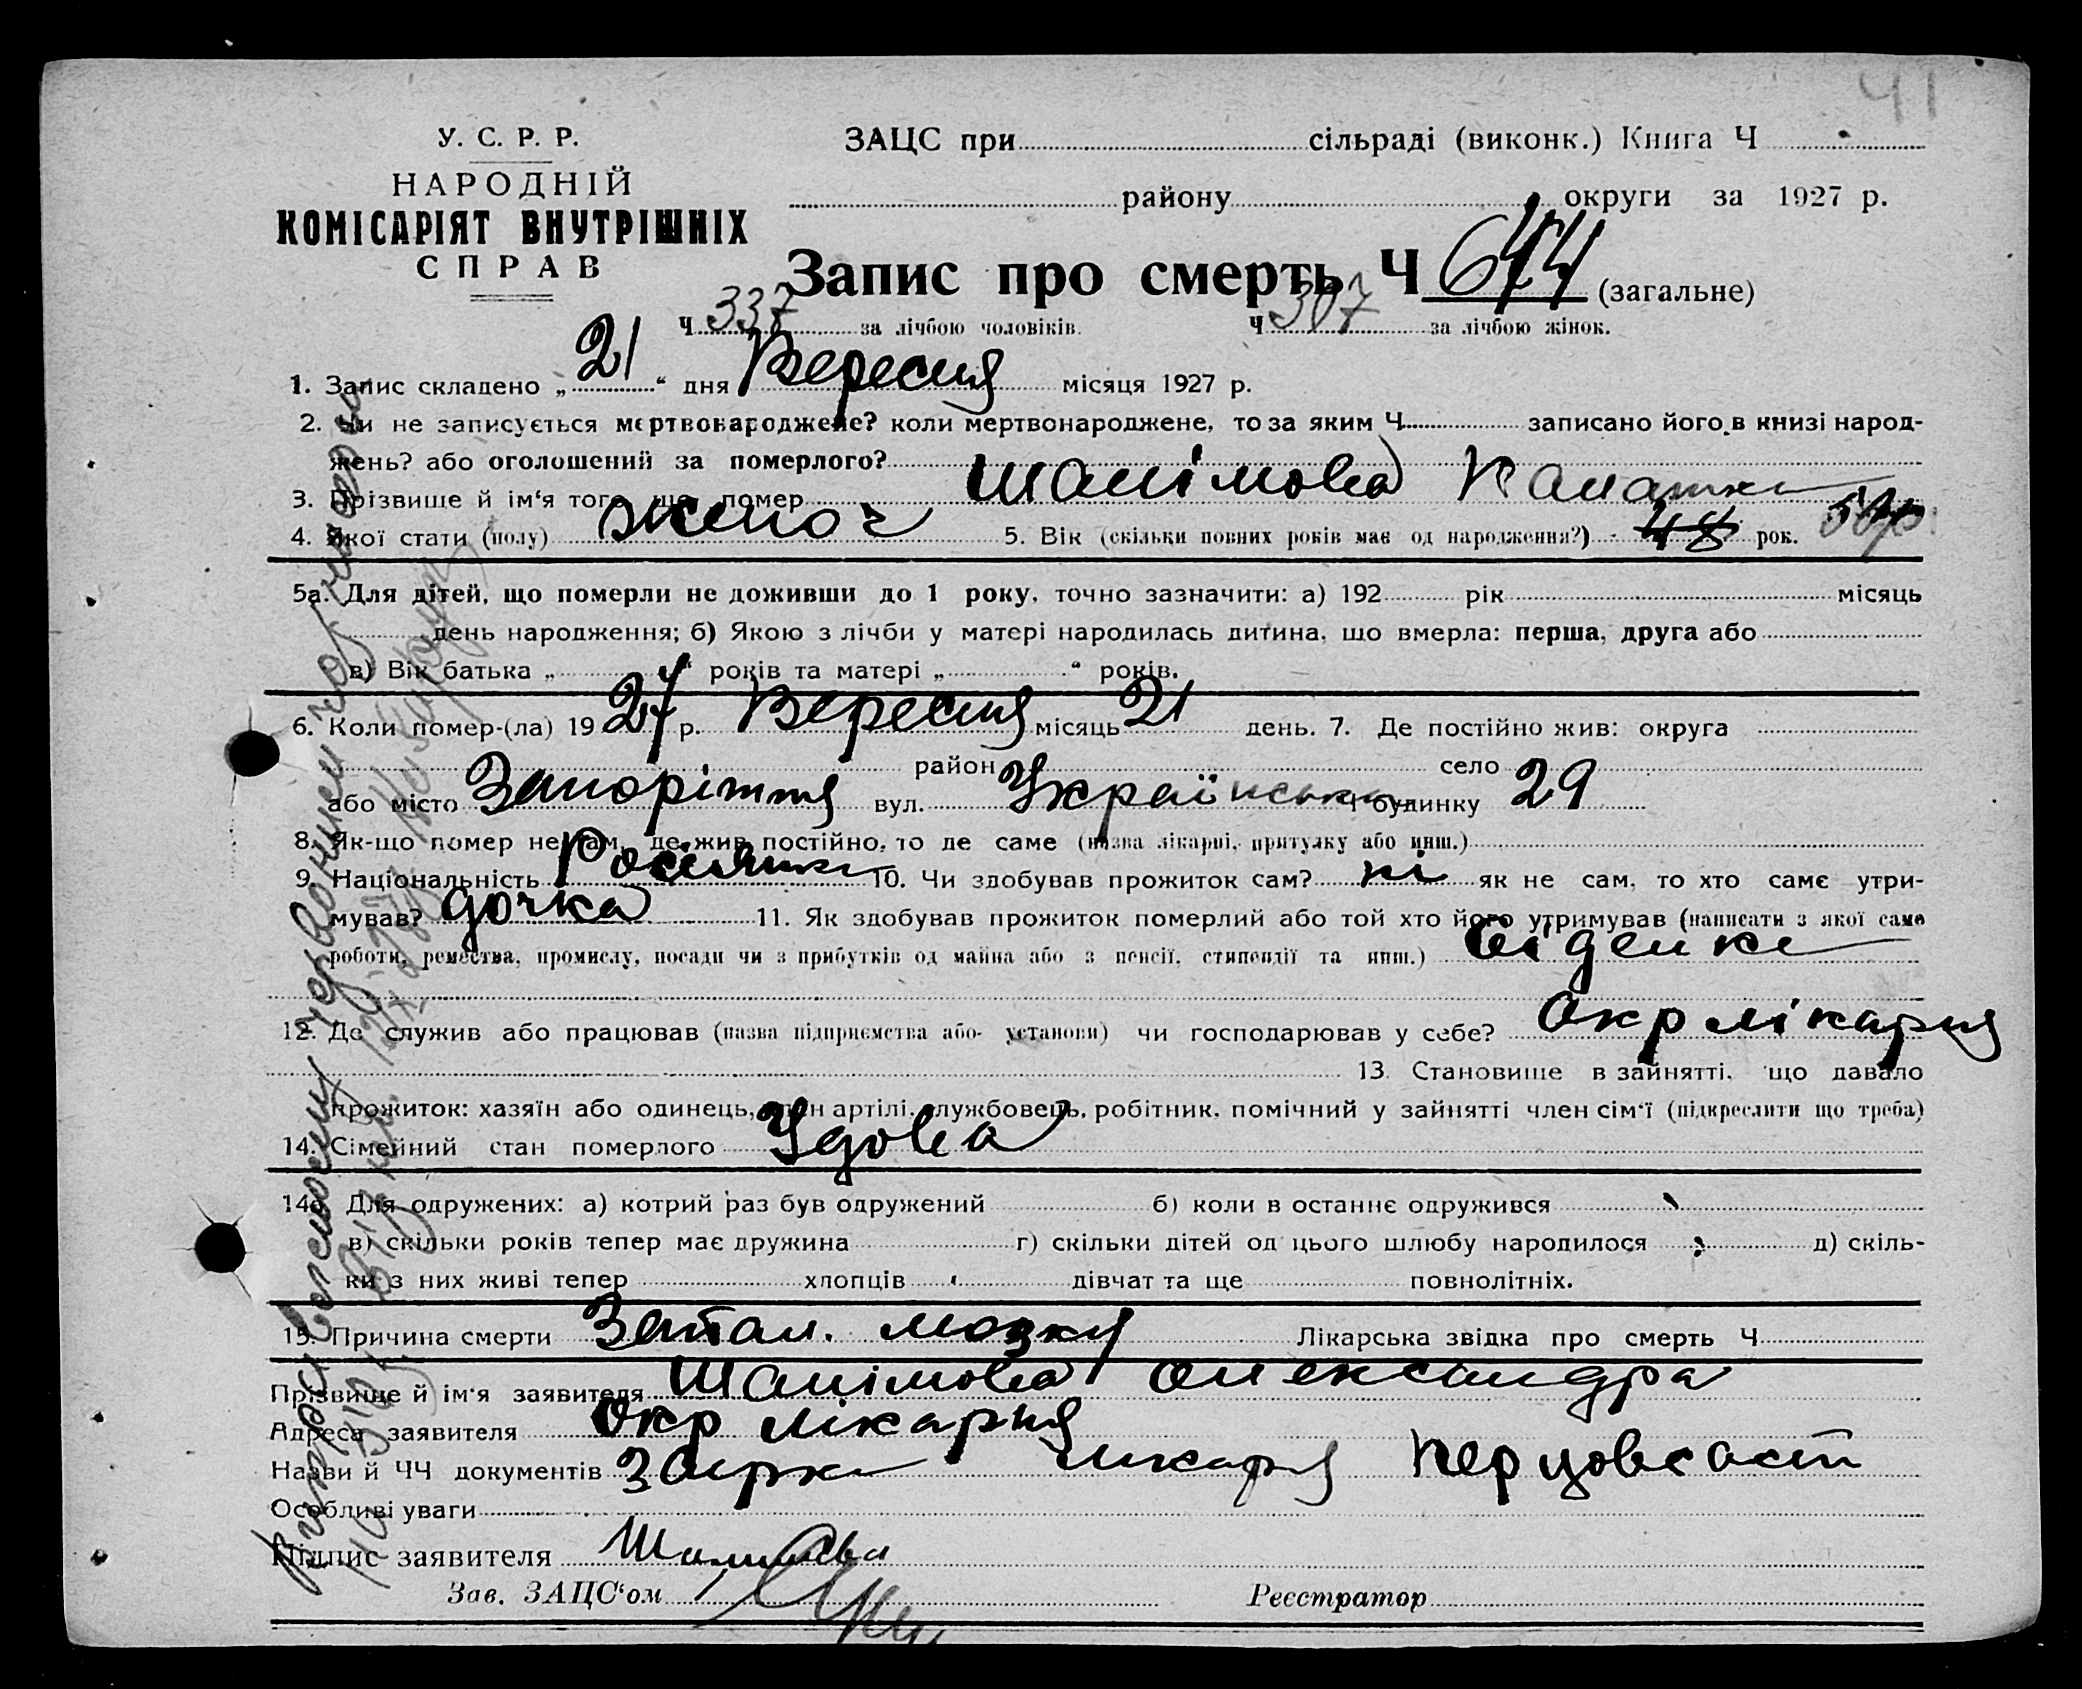 41
У. С. Р. Р.
НАРОДНІЙ
КОМІСАРІЯТ ВНУТРІШНІХ
СПРАВ
ЗАЦС при сільраді (виконк.) Книга Ч
району округи за 1927 р.
Запис про смерть Ч 644 (загальне)
Ч 337 за лічбою чоловіків. Ч 307 за лічбою жінок.
1. Запис складено „ 21 “ дня Вересня місяця 1927 р.
2. Чи не записується мертвонароджене? коли мертвонароджене, то за яким Ч записано його в книзі народ-
жень? або оголошений за померлого?
3. Прізвище й ім‘я того, що помер
4. Якої стати (полу) жіноч 5. Вік (скільки повних років має од народження?) 48 рок.
5а. Для дітей, що померли не доживши до 1 року, точно зазначити: а) 192 рік місяць
день народження; б) Якою з лічби у матері народилась дитина, що вмерла: перша, друга або
в) Вік батька „ “ років та матері „ “ років.
6. Коли помер-(ла) 19 27 р. Вересня місяць 21 день. 7. Де постійно жив: округа
район село
або місто Запоріжжя вул. Українська Ч будинку 29
8. Як-що помер не там, де жив постійно, то де саме (назва лікарні, притулку або инш.)
9. Національність Росіянка 10. Чи здобував прожиток сам? ні як не сам, то хто саме утри-
мував? дочка 11. Як здобував прожиток померлий або той хто його утримував (написати з якої саме
роботи, ремества, промислу, посади чи з прибутків од майна або з пенсії, стипендії та инш.)
12. Де служив або працював (назва підприємства або установи) чи господарював у себе? Окр лікарня
13. Становище в зайнятті, що давало
прожиток: хазяїн або одинець, член артілі, службовець, робітник, помічний у зайнятті член сім‘ї (підкреслити що треба)
14. Сімейний стан померлого Удова
14а. Для одружених: а) котрий раз був одружений б) коли в останнє одружився
в) скільки років тепер має дружина г) скільки дітей од цього шлюбу народилося д) скіль-
ки з них живі тепер хлопців дівчат та ще повнолітніх.
15. Причина смерти Запал. мозку Лікарська звідка про смерть Ч
Прізвище й ім‘я заявителя Олександра
Адреса заявителя Окр лікарня
Назви й ЧЧ документів лікаря
Особливі уваги
Підпис заявителя
Зав. ЗАЦС‘ом Реєстратор